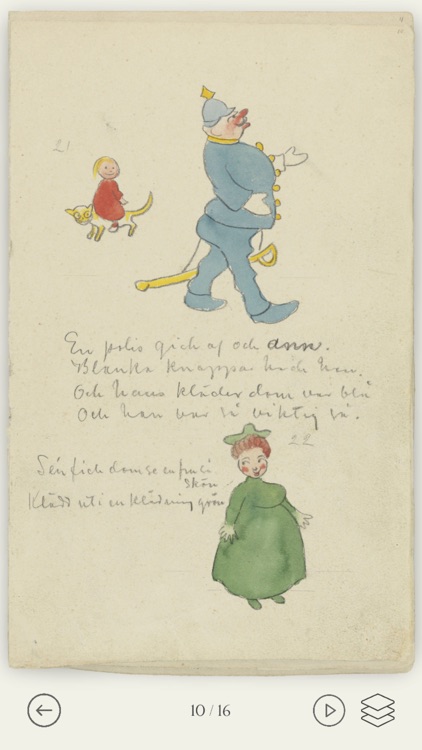 21
En polis gick af och ann.
Blanka knappar hade han.
Och hans kläder dom var blå
Och han var så viktig så.
22
Sén fick dom se en fru så
skön
Klädd uti en klädning grön
10 / 16